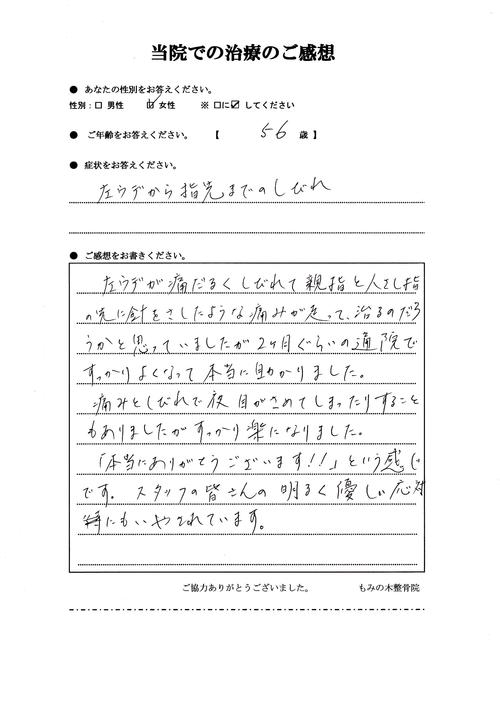 当院での治療のご感想
● あなたの性別をお答えください。
性別：□ 男性 ☑ 女性 ※ □に☑ してください
● ご年齢をお答えください。 【 56 歳 】
● 症状をお答えください。
左ウデから指先までのしびれ
● ご感想をお書きください。
左ウデが痛だるくしびれて親指と人さし指
の先に針をさしたような痛みが走って、治るのだろ
うかと思っていましたが2ヶ月ぐらいの通院で
すっかりよくなって本当に助かりました。
痛みとしびれで夜目がさめてしまったりすること
もありましたがすっかり楽になりました。
「本当にありがとうございます!!」という感じ
です。スタッフの皆さんの明るく優しい応対
にもいやされています。
ご協力ありがとうございました。 もみの木整骨院